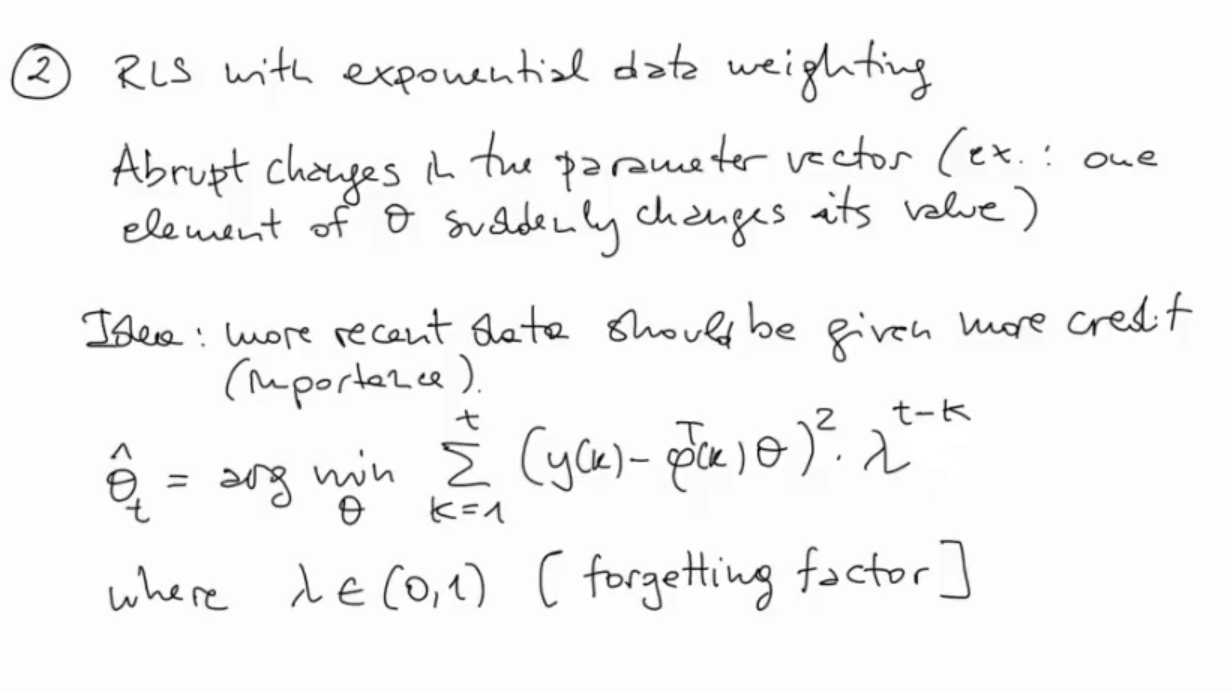 ② RLS with exponential data weighting
Abrupt changes in the parameter vector (ex.: one
element of θ suddenly changes its value)
Idea: more recent data should be given more credit
(importance).
θ̂_t = arg min_θ ∑_{k=1}^{t} (y(k) - φ^T(k) θ)^2 · λ^{t-k}
where λ ∈ (0,1) [forgetting factor]